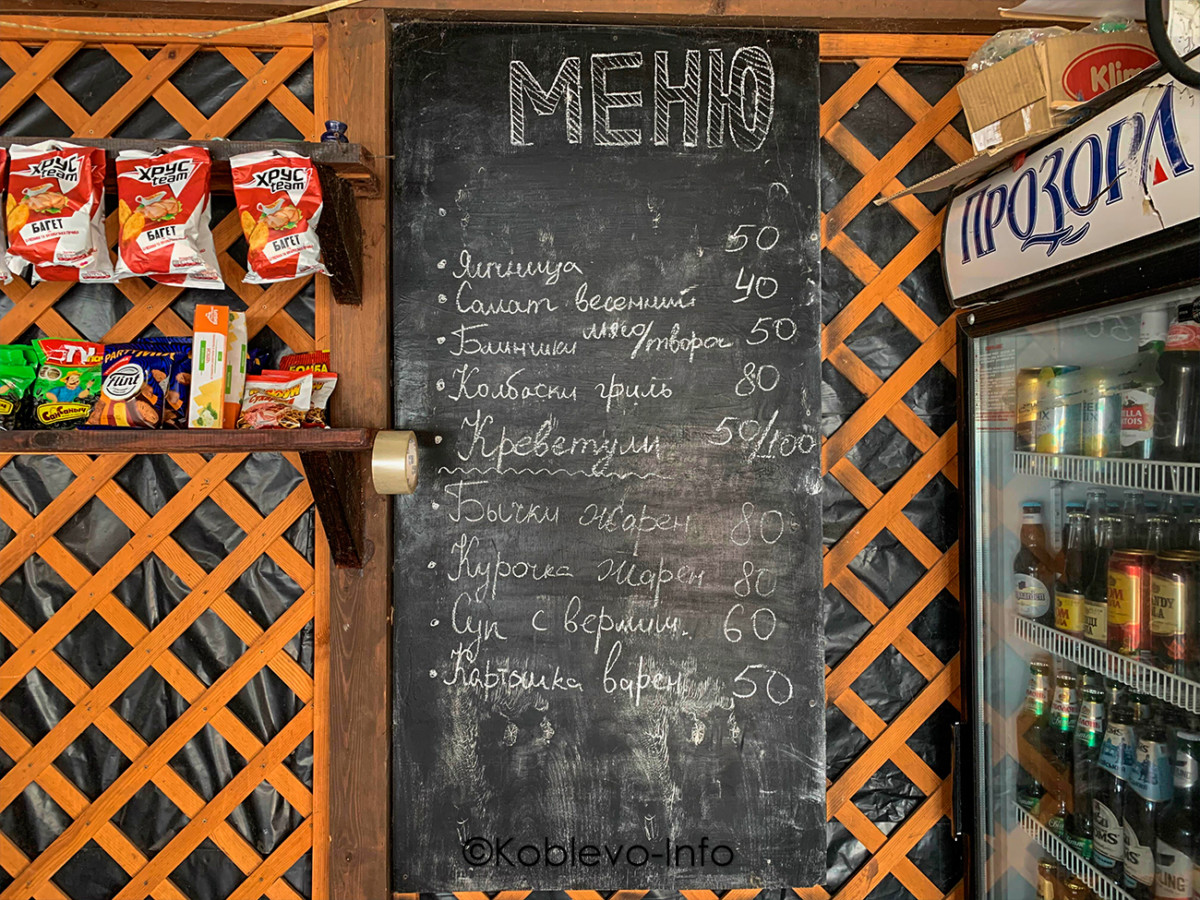 МЕНЮ
Яичница 50
Салат весенний 40
Блинчики мясо/творог 50
Колбаски гриль 80
Креветули 50/100
Бычки жарен 80
Курочка жарен 80
Суп с вермиш. 60
Картошка варен 50
©Koblevo-Info
ХРУС
team
БАГЕТ
ХРУС
team
БАГЕТ
ХРУС
team
БАГЕТ
СанСаныч
PARTY MIX
flint
БОМБА
Klim
ПРОЗОРА